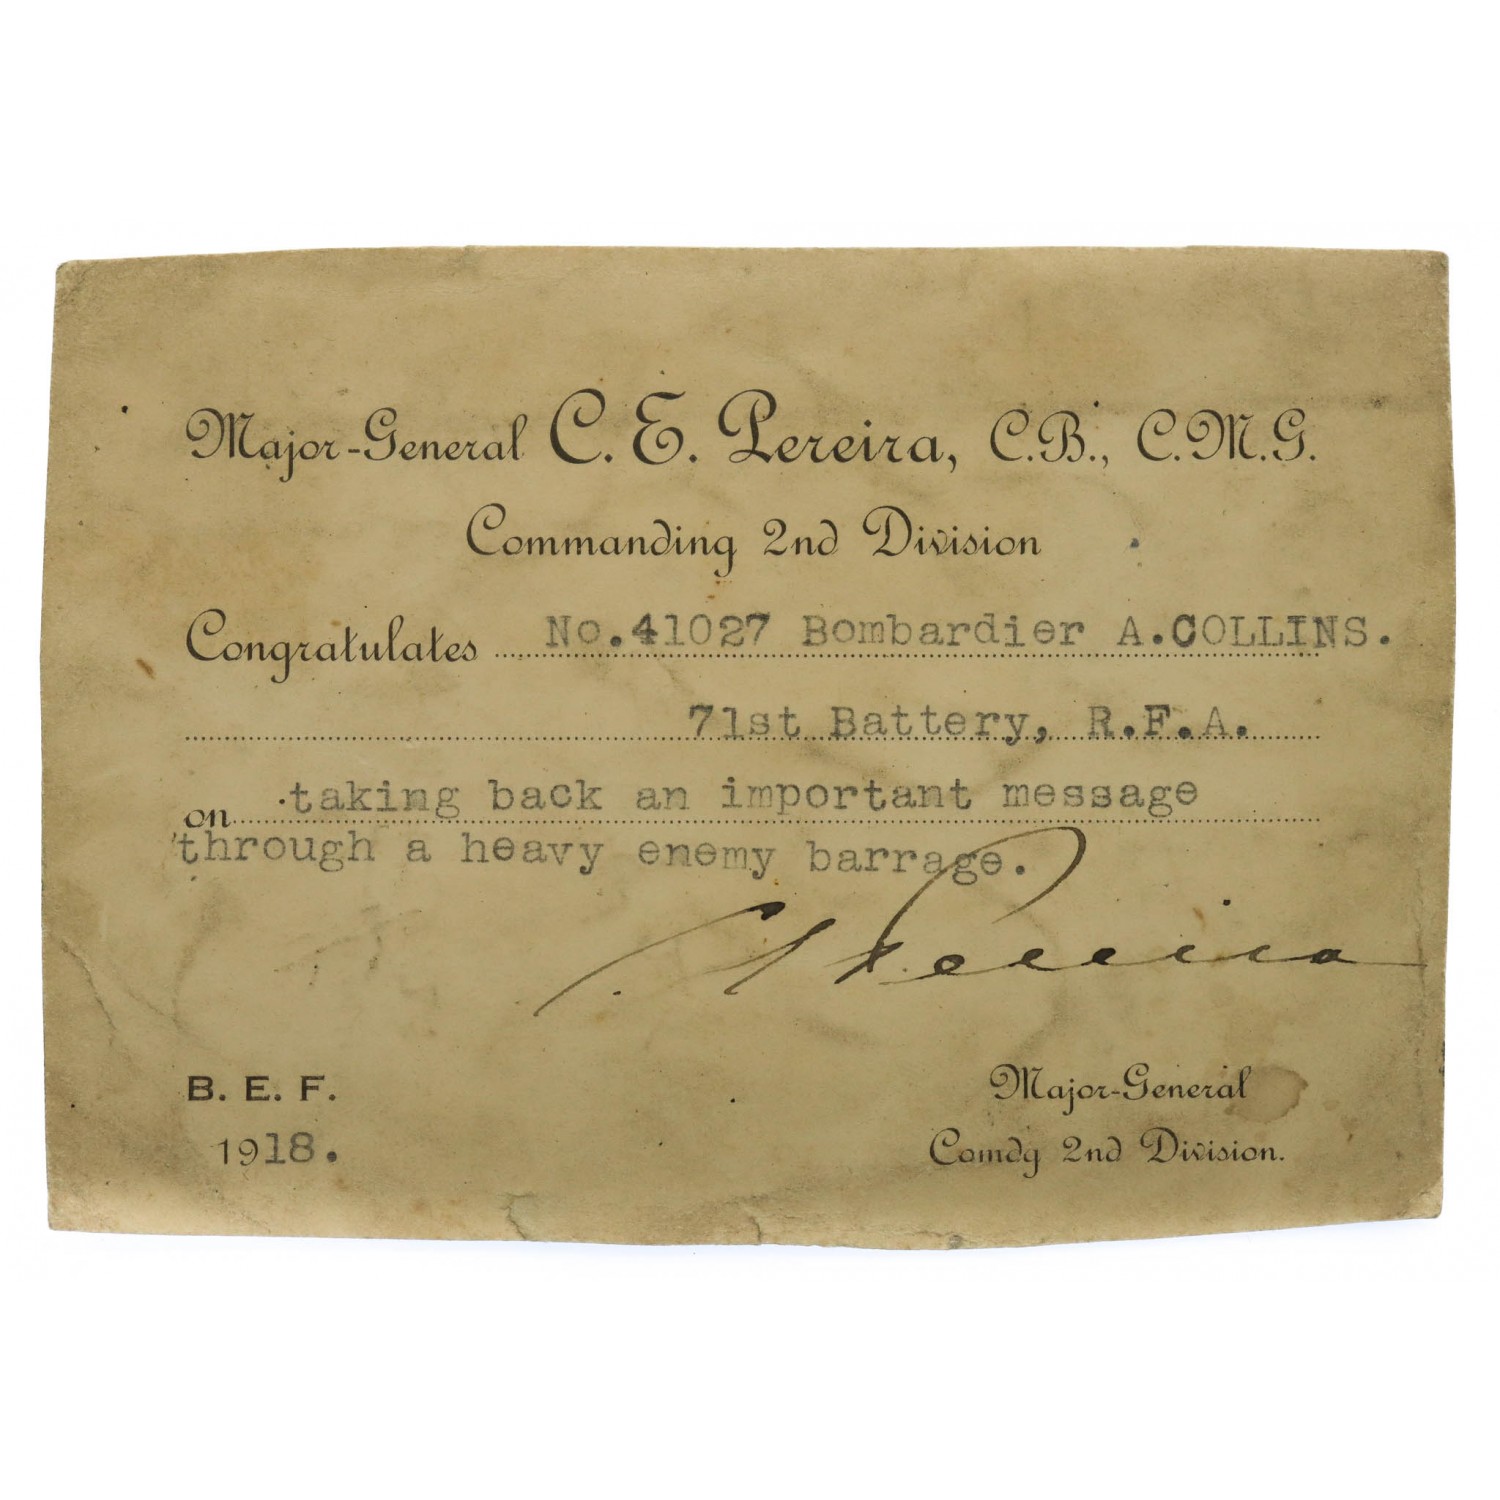 Major-General C. E. Pereira, C.B., C.M.G.
Commanding 2nd Division
Congratulates No.41027 Bombardier A.COLLINS.
71st Battery, R.F.A.
on taking back an important message
through a heavy enemy barrage.
C E Pereira
B. E. F. Major-General
1918. Comdg 2nd Division.